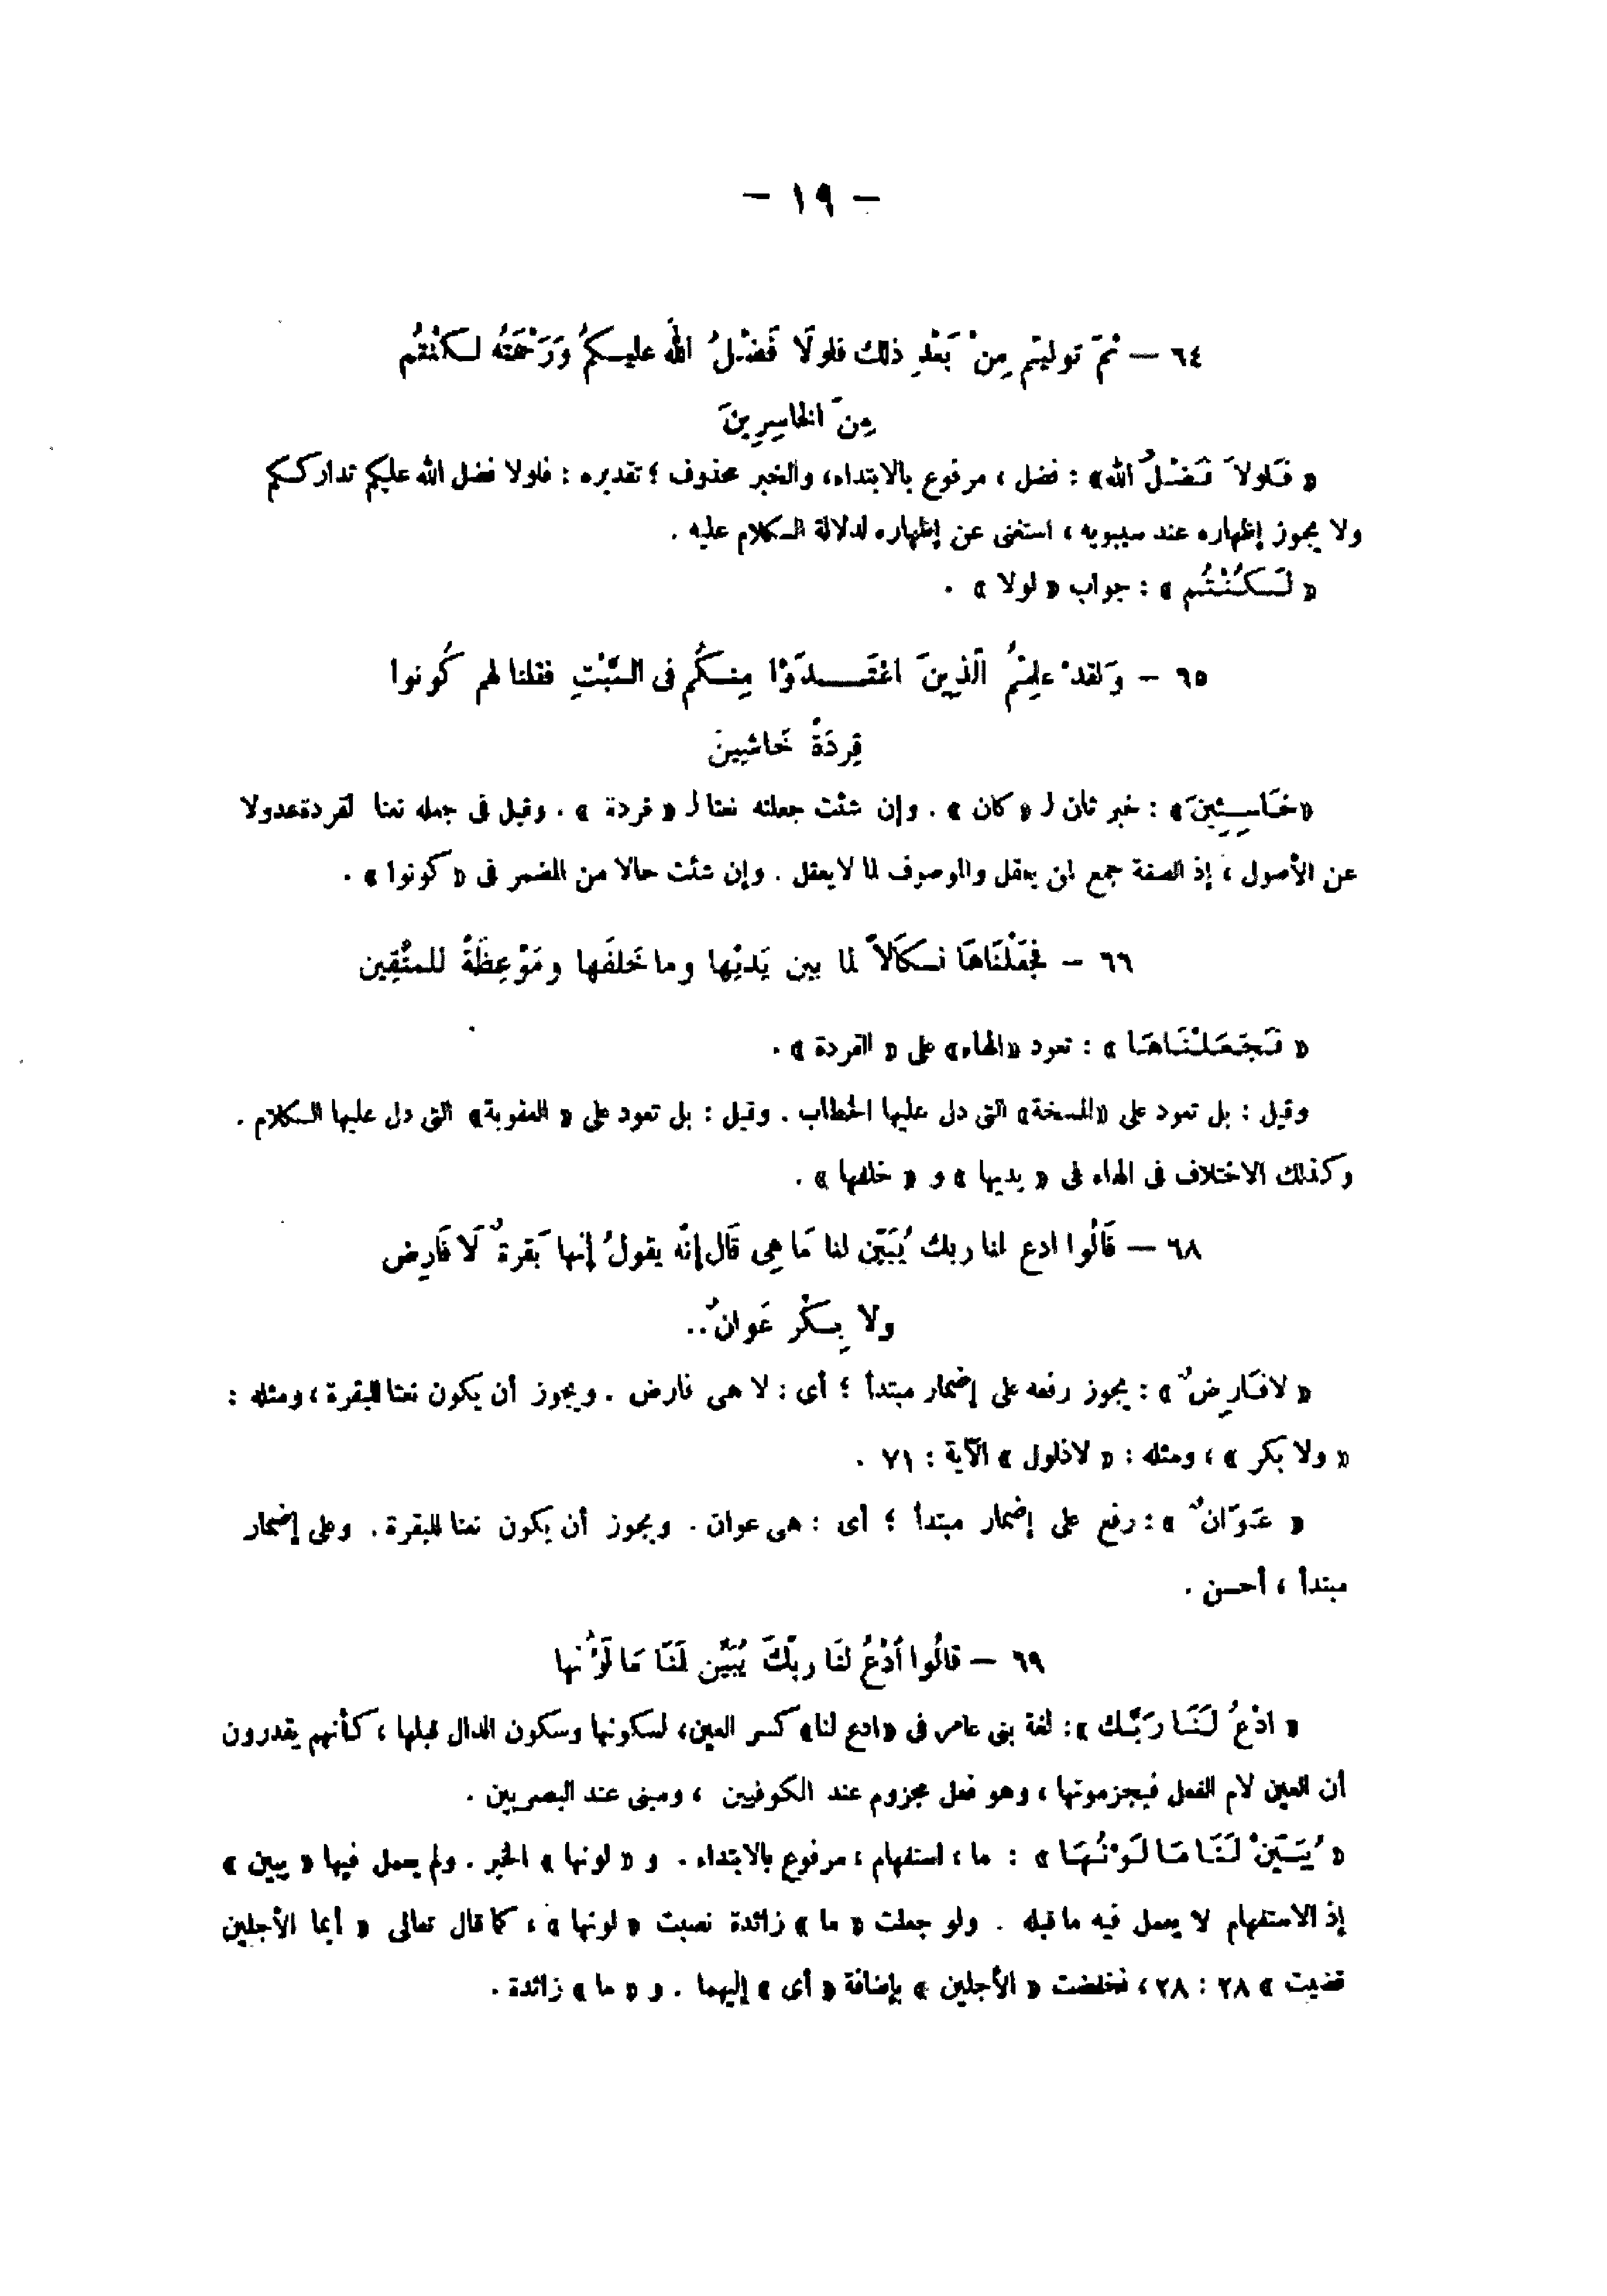 — ١٩ —
٦٤ — ثمّ توليتم مِنْ بَعْدِ ذلك فلولَا فَضْلُ اللّه عليكُم وَرَحْمَتُه لكنْتُم
مِنَ الخاسِرِينَ
« فَلولاَ فَضْلُ الله» : فضل ، مرفوع بالابتداء، والخبر محذوف ؛ تقديره : فلولا فضل الله عليكم تدارككم
ولا يجوز إظهاره عند سيبويه ، استغنى عن إظهاره لدلالة الكلام عليه .
« لَكُنْتُم » : جواب « لولا » .
٦٥ — وَلقدْ علِمْتُم الّذِينَ اعْتَدَوْا مِنكُم فى السَّبْتِ فقلنا لهم كُونوا
قِرَدَةً خَاسْيِينَ
«خَاسِئِينَ» : خبر ثان لـ « كان » . وإن شئت جعلته نعتا لـ « قردة » . وقيل فى جعله نعتا لقردةعدولا
عن الأصول ، إذ الصفة جمع لمن يعقل والموصوف لما لايعقل . وإن شئت حالا من المضمر فى « كونوا » .
٦٦ — فجَعَلْنَاهَا نكَالاً لما بين يَديْها وما خَلفَها ومَوْعِظَةً للمتَّقِين
« فَجَعَلْنَاهَا » : تعود «الهاء» على « القردة » .
وقيل : بل تعود على «المسخة» التى دل عليها الخطاب . وقيل : بل تعود على « العقوبة» التى دل عليها الكلام .
وكذلك الاختلاف فى الهاء فى « يديها » و « خلفها » .
٦٨ — قَالُوا ادع لنا ربك يُبَيِّن لنا مَا هِى قَال إنّه يقولُ إنها بَقرةٌ لَا فَارِض
ولا بِكْر عَوانٌ..
« لافَارِضٌ » : يجوز رفعه على إضمار مبتدأ ؛ أى : لا هى فارض . ويجوز أن يكون نعتا للبقرة ، ومثله :
« ولا بكر » ، ومثله : « لاذلول » الآية : ٧١ .
« عَوَانٌ » : رفع على إضمار مبتدأ ؛ أى : هى عوان . ويجوز أن يكون نعتا للبقرة . وعلى إضمار
مبتدأ ، أحسن .
٦٩ — قالُوا أدْعُ لنَا ربّكَ يُبَيِّن لَنَا مَا لَوْنُها
« ادْعُ لَنَا رَبَّك » : لغة بنى عامر فى «ادع لنا» كسر العين، لسكونها وسكون الدال قبلها ، كأنهم يقدرون
أن العين لام الفعل فيجزمونها ، وهو فعل مجزوم عند الكوفيين ، ومبنى عند البصريين .
« يُبَيِّنْ لَنَا مَا لَوْنُهَا » : ما ، استفهام ، مرفوع بالابتداء . و « لونها » الخبر . ولم يعمل فيها « يبين »
إذ الاستفهام لا يعمل فيه ما قبله . ولو جعلت « ما » زائدة نصبت « لونها » ، كما قال تعالى « أيما الأجلين
قضيت » ٢٨ : ٢٨، فخفضت « الأجلين » بإضافة « أى » إليهما . و « ما » زائدة .